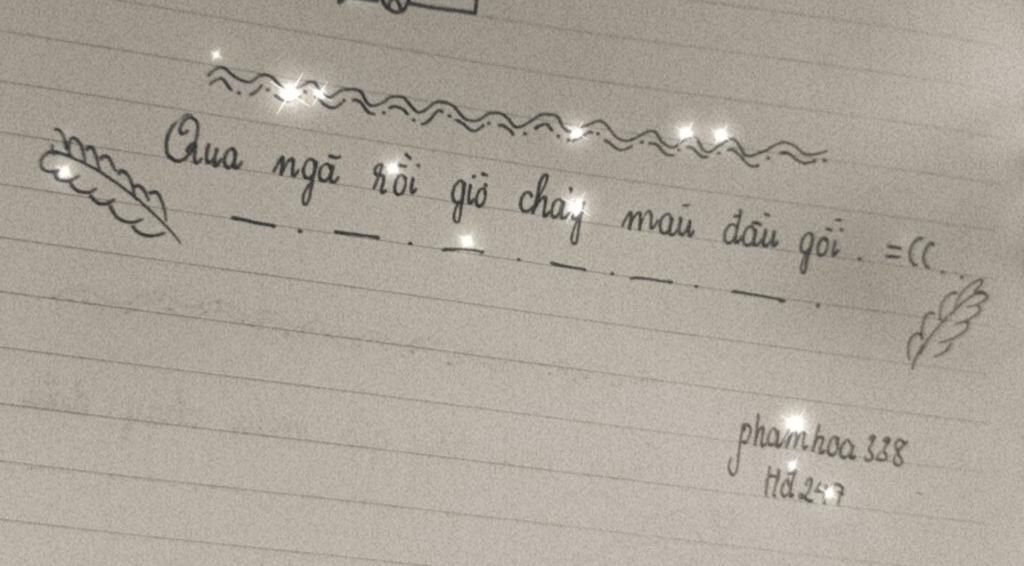 Qua ngã rồi giờ chảy máu đầu gối. =((...
phamhoa 338
Hđ 247